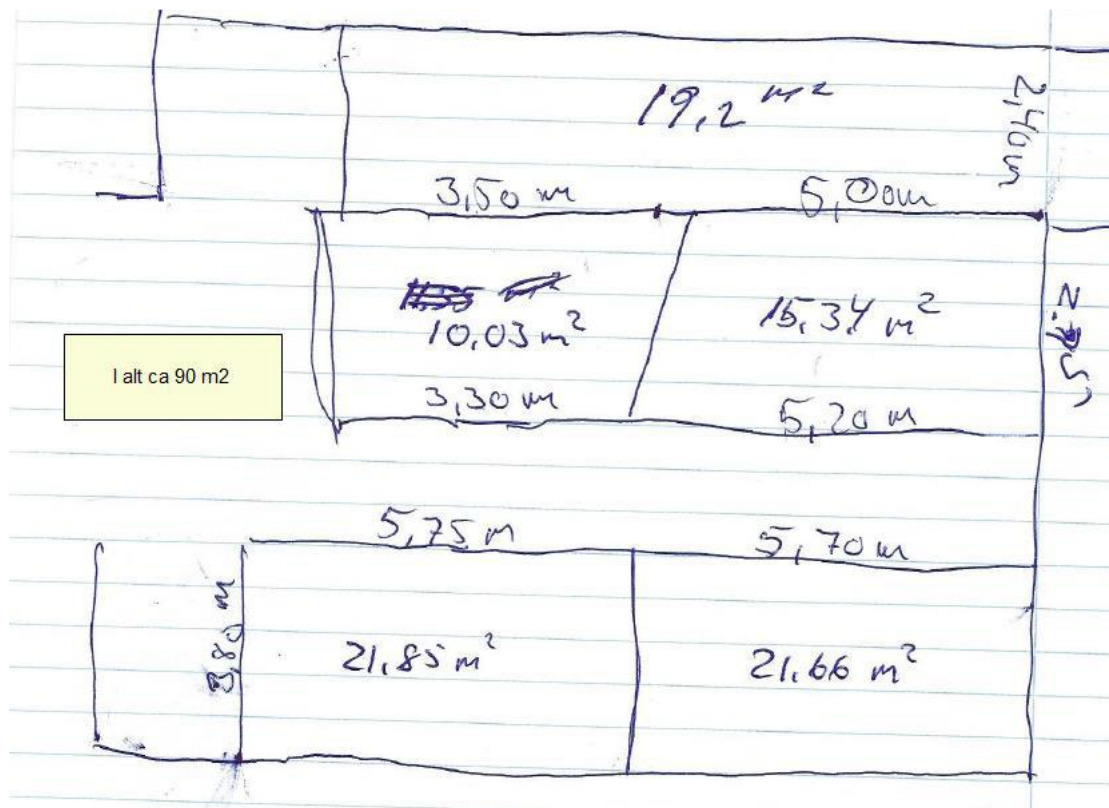 19,2 m²
2,40m
3,50 m 5,00m
10,03 m²
15,34 m²
I alt ca 90 m2
3,30 m
5,20 m
5,75 m
5,70 m
3,80 m
21,85 m²
21,66 m²